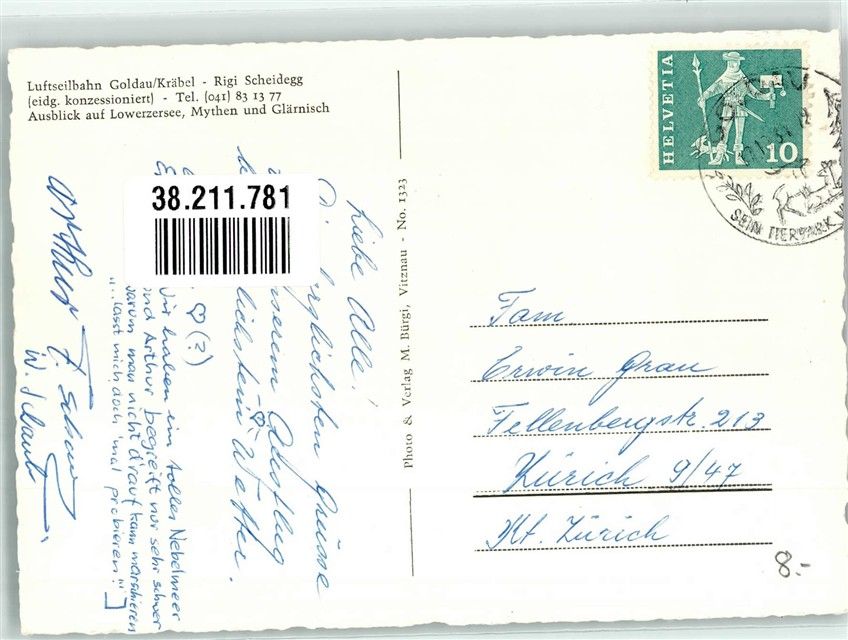 Luftseilbahn Goldau/Kräbel - Rigi Scheidegg
(eidg. konzessioniert) - Tel. (041) 83 13 77
Ausblick auf Lowerzersee, Mythen und Glärnisch
38.211.781
Liebe Alle!
Grüsse
Ausflug
Wetter.
♡ (?)
Wir haben ein tolles Nebelmeer
und Arthur begreift nur sehr schwer
warum man nicht drauf kann marschieren
"..lasst mich doch 'mal probieren!"]
Arthur
Photo & Verlag M. Bürgi, Vitznau - No. 1323
HELVETIA
10
GOLDAU
SEIN TIERPARK
Fam.
Erwin Grau
Fellenbergstr. 213
Zürich 9/47
Kt. Zürich
8.-